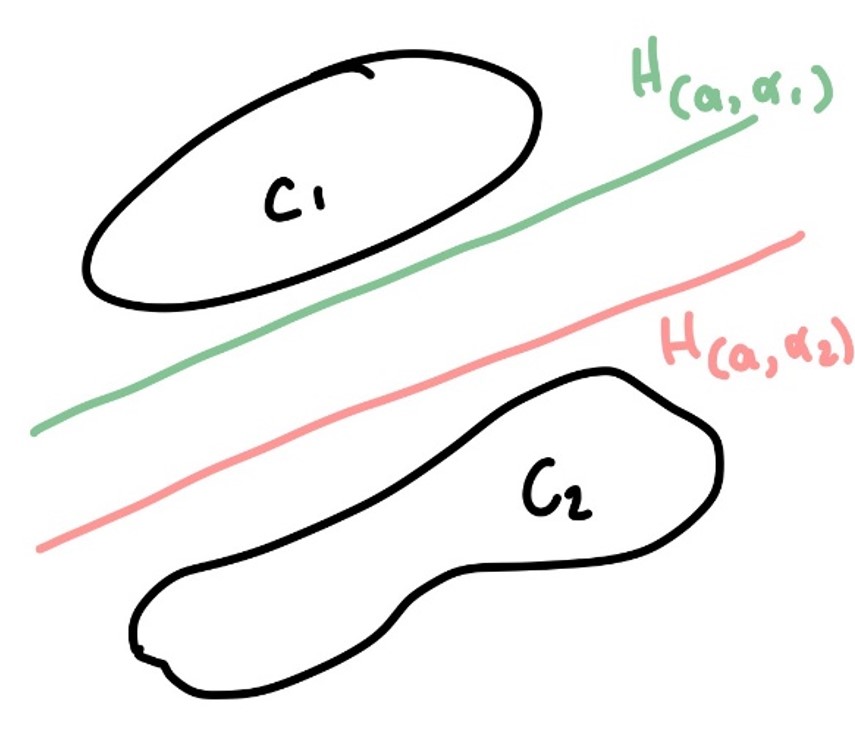 H(a, α₁)
C₁
H(a, α₂)
C₂